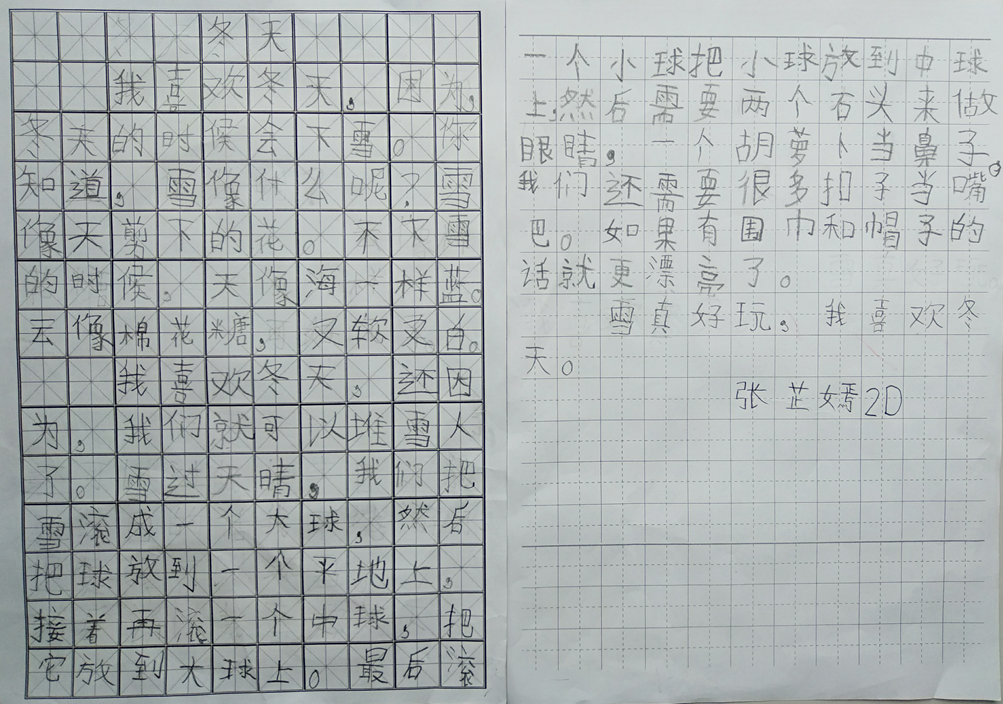 冬天
我喜欢冬天，因为，
冬天的时候会下雪。你
知道，雪像什么呢？雪
像天剪下的花。不下雪
的时候，天像海一样蓝。
云像棉花糖，又软又白。
我喜欢冬天，还因
为，我们就可以堆雪人
了。雪过天晴，我们把
雪滚成一个大球，然后
把球放到一个平地上，
接着再滚一个中球，把
它放到大球上。最后滚
一个小球把小球放到中球
上，然后需要两个石头来做
眼睛，一个胡萝卜当鼻子。
我们还需要很多扣子当嘴
巴。如果有围巾和帽子的
话就更漂亮了。
雪真好玩，我喜欢冬
天。
张芷嫣2D